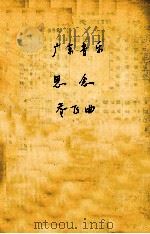 广东音乐
思念
春飞曲